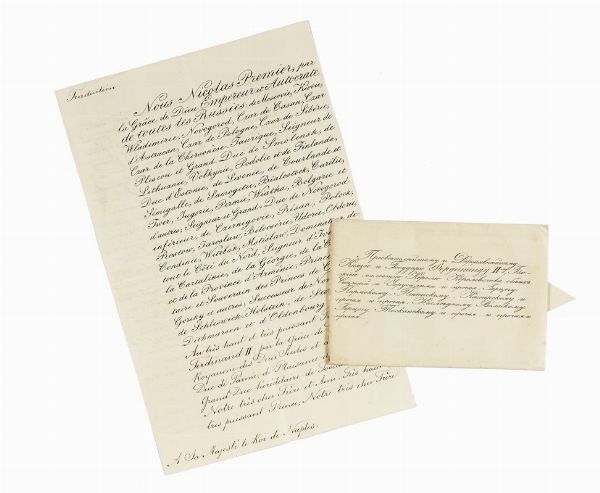 Traduction.
Nous Nicolas Premier, par
la Grâce de Dieu Empereur et Autocrate
de toutes les Russies de Moscovie, Kiovie,
Wladimirie, Novogorod, Czar de Casan, Czar
d'Astracan, Czar de Pologne, Czar de Sibérie,
Czar de la Chersonèse Taurique, Seigneur de
Plescou et Grand Duc de Smolensk, de
Lithuanie, Volhynie, Podolie et de Finlande,
Duc d'Estonie, de Livonie, de Courlande et
Sémigalle, de Samogitie, Bialostock, Carélie,
Twer, Jugorie, Permie, Wiatka, Bolgarie et
d'autres; Seigneur et Grand-Duc de Novogorod
inférieur, de Czernigovie, Résan, Polock,
Rostow, Jaroslaw, Bélosérie, Udorie, Obdorie,
Condinie, Witebsk, Mstislaw, Dominateur de
tout le Côté du Nord, Seigneur d'
la Cartalinie, de la Géorgie, de la
et de la Province d'Arménie, Prince
taire et Souverain des Princes de
Gorsky et autres, Successeur de
de Schleswick-Holstein, de
Dithmarsen et d'Oldenbourg
Au très haut et très puissant
Ferdinand II par la Grâce de
Royaume des Deux Siciles et
Duc de Parme, de Plaisance
Grand Duc héréditaire de
Notre très cher Frère et Ami. Très haut
très puissant Prince, Notre très cher Frère
A Sa Majesté le Roi de Naples.
Пресветлейшему и Державнейшему
Князю и Государю Фердинанду II му
Королевства обеих
Сицилий и Иерусалима и прочая, Герцогу
Пармскому, Пиаченцскому, Кастрскому и
прочая и прочая, Великому
Герцогу Тосканскому и прочая и прочая
прочая.